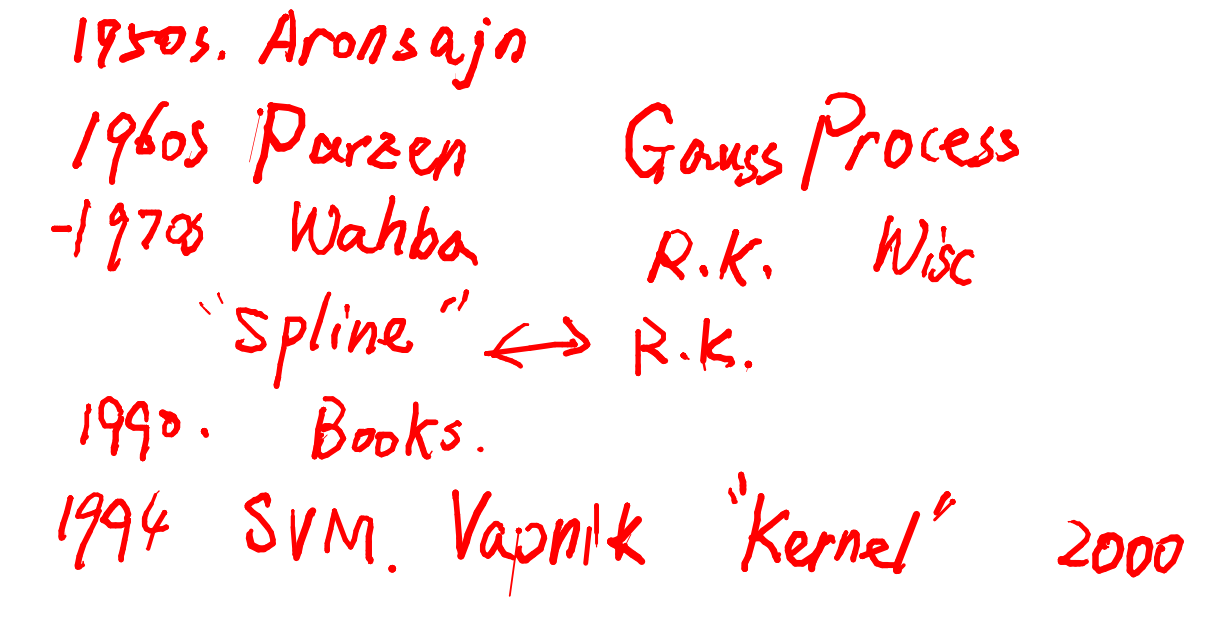 1950s. Aronsajn
1960s Parzen Gauss Process
-1970s Wahba R.K. Wisc
"Spline" ↔ R.K.
1990. Books.
1994 SVM. Vapnik "Kernel" 2000